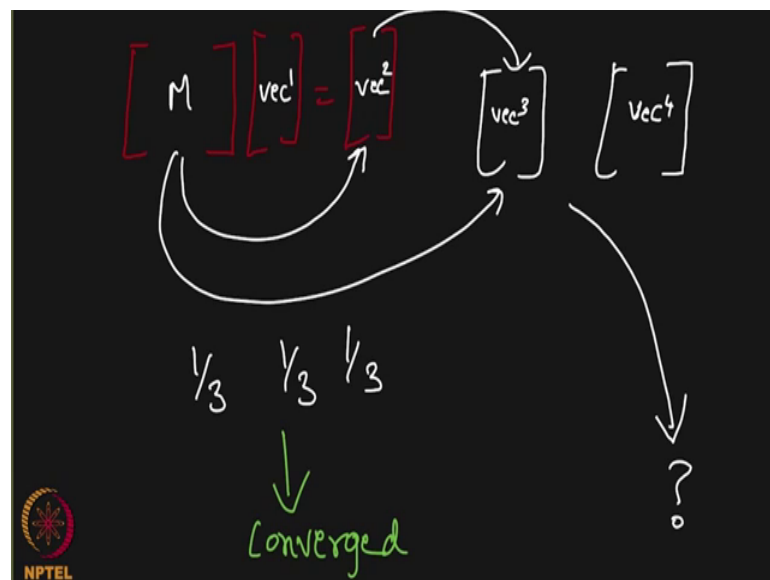 [ M ] [ vec¹ ] = [ vec² ] [ vec³ ] [ vec⁴ ]
1/3 1/3 1/3
Converged
?
NPTEL